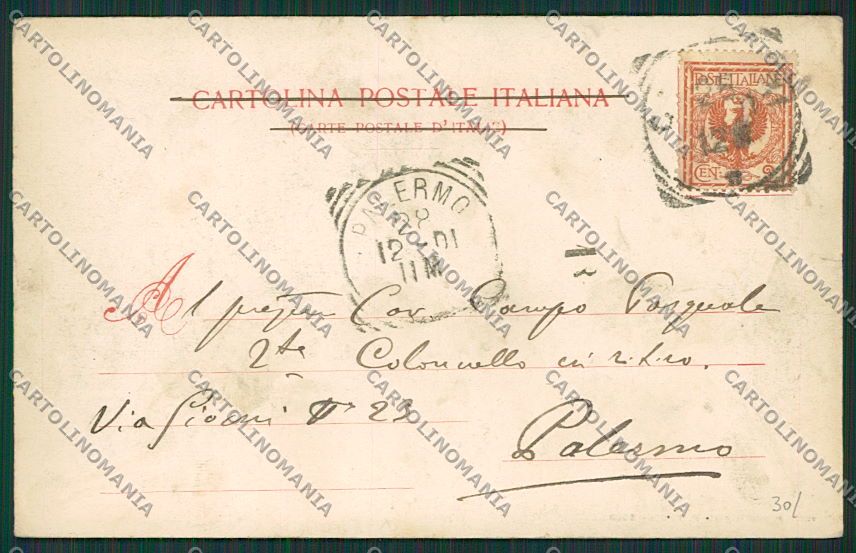 CARTOLINA POSTALE ITALIANA
(CARTE POSTALE D'ITALIE)
POSTE ITALIANE
CEN. 2
PALERMO
28
12 - 01
11 M
Al Cav. Campo Pasquale
Colonnello in ritiro.
Via Gioeni N° 23
Palermo
30/
CARTOLINOMANIA